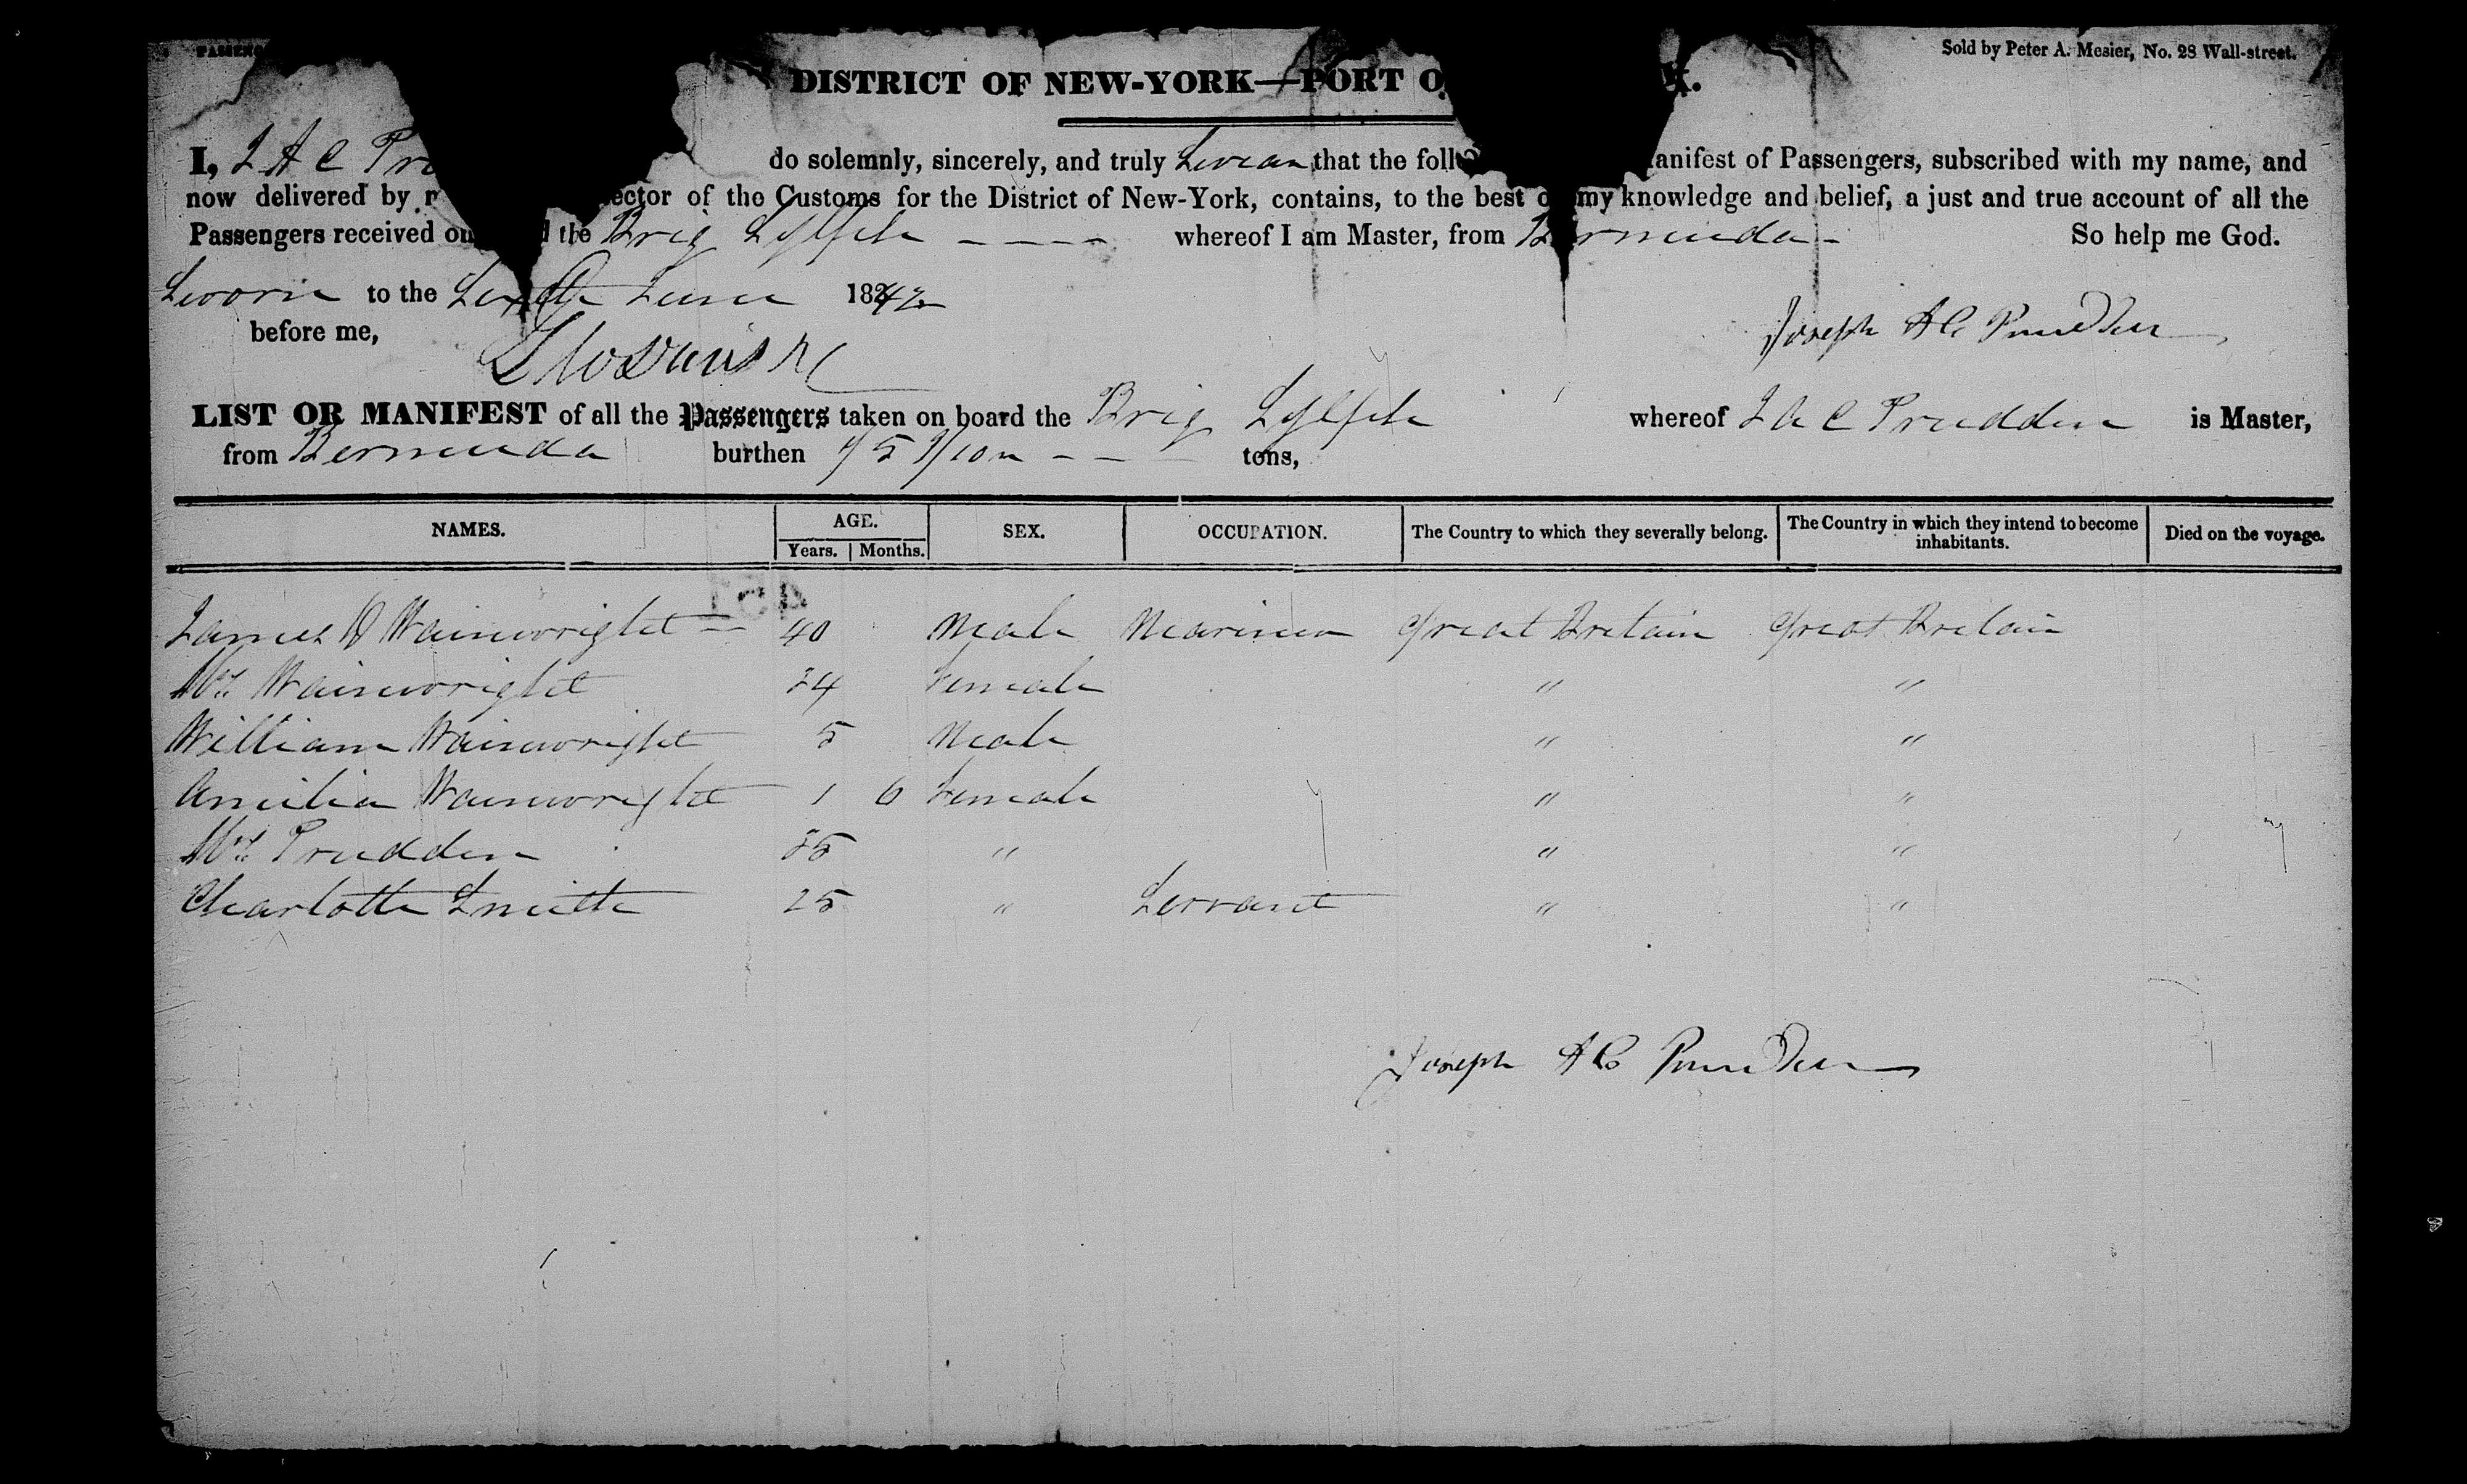 PASSENG
Sold by Peter A. Mesier, No. 28 Wall-street.
DISTRICT OF NEW-YORK—PORT O K.
I, J A C Pru do solemnly, sincerely, and truly Swear that the foll anifest of Passengers, subscribed with my name, and
now delivered by m ector of the Customs for the District of New-York, contains, to the best of my knowledge and belief, a just and true account of all the
Passengers received on d the Brig Sylph whereof I am Master, from Bermuda - So help me God.
Sworn to the June 1842
before me,
Joseph A C Prudden
LIST OR MANIFEST of all the Passengers taken on board the Brig Sylph whereof J A C Prudden is Master,
from Bermuda burthen tons,
NAMES. AGE. SEX. OCCUPATION. The Country to which they severally belong. The Country in which they intend to become inhabitants. Died on the voyage.
Years. Months.
451
James D Wainwright — 40 Male Mariner Great Britain Great Britain
Mrs Wainwright 24 Female " "
William Wainwright 5 Male " "
Amilia Wainwright 1 6 Female " "
Mrs Prudden 25 " " "
Charlotte Smith 25 " Servant " "
Joseph A C Prudden